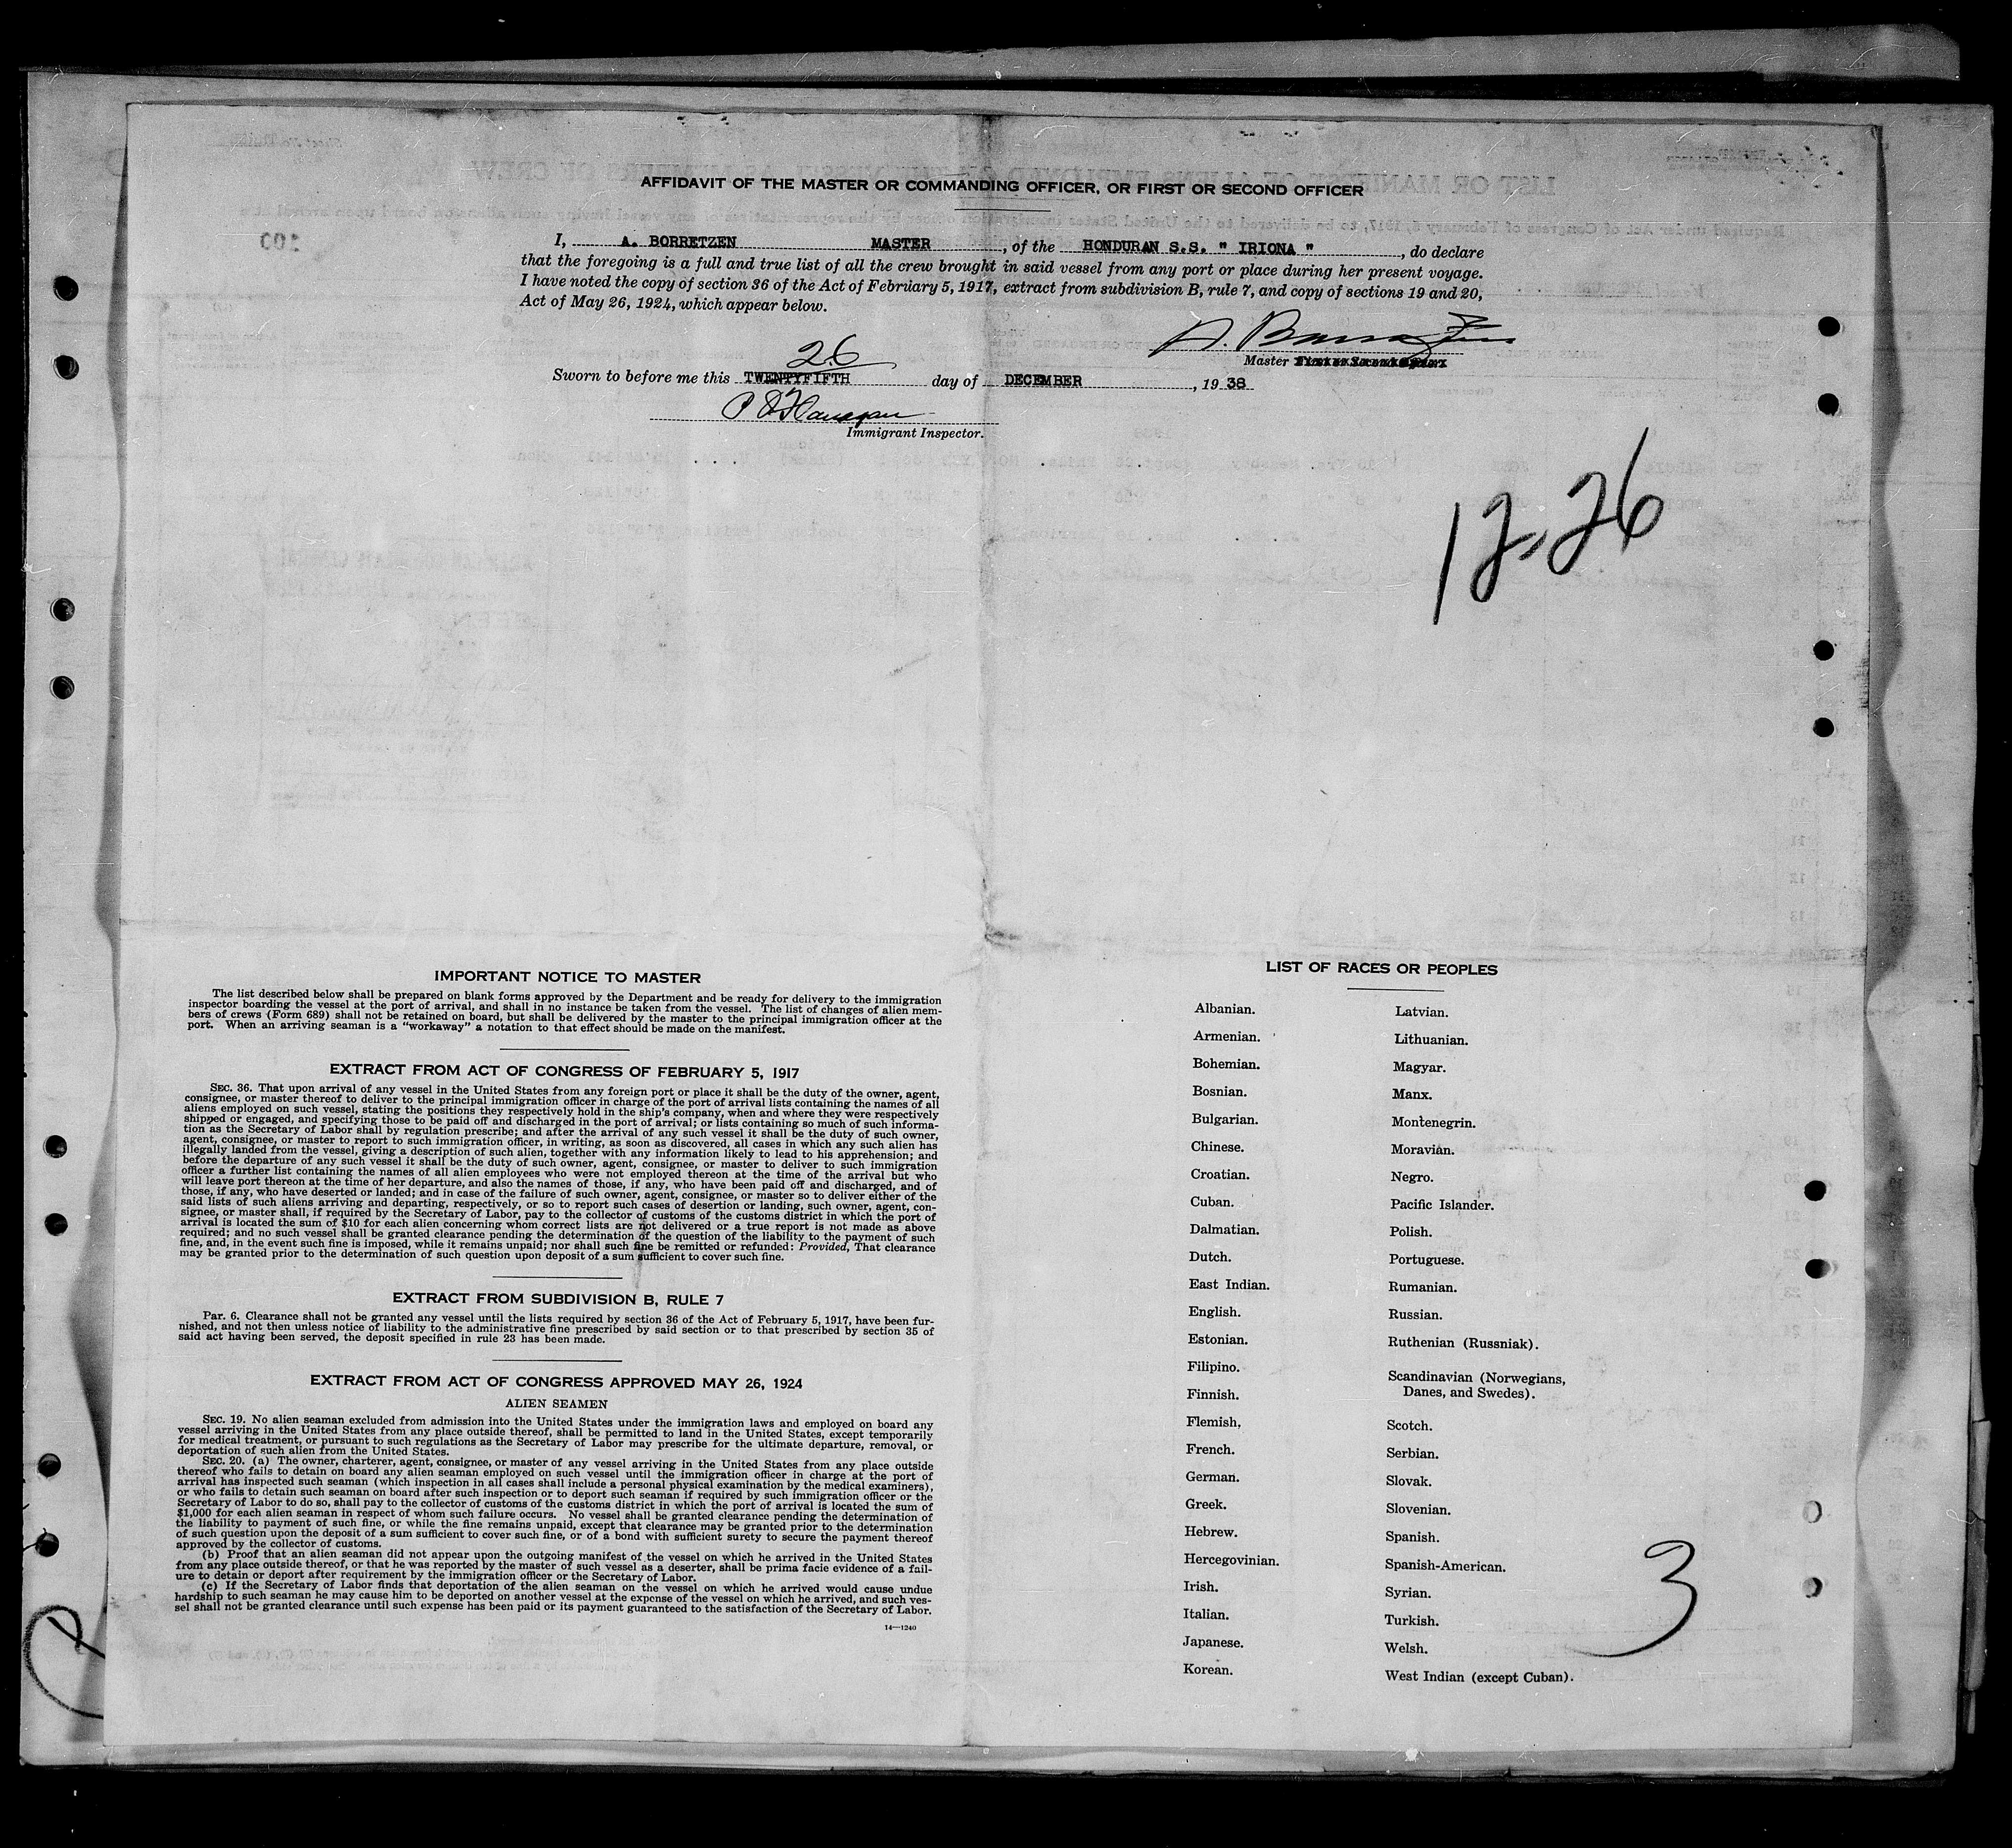 AFFIDAVIT OF THE MASTER OR COMMANDING OFFICER, OR FIRST OR SECOND OFFICER
I, A. BORRETZEN MASTER, of the HONDURAN S.S. " IRIONA ", do declare
that the foregoing is a full and true list of all the crew brought in said vessel from any port or place during her present voyage.
I have noted the copy of section 36 of the Act of February 5, 1917, extract from subdivision B, rule 7, and copy of sections 19 and 20,
Act of May 26, 1924, which appear below.
Master
26
Sworn to before me this TWENTYFIFTH day of DECEMBER, 1938
Immigrant Inspector.
12-26
IMPORTANT NOTICE TO MASTER
The list described below shall be prepared on blank forms approved by the Department and be ready for delivery to the immigration
inspector boarding the vessel at the port of arrival, and shall in no instance be taken from the vessel. The list of changes of alien mem-
bers of crews (Form 689) shall not be retained on board, but shall be delivered by the master to the principal immigration officer at the
port. When an arriving seaman is a "workaway" a notation to that effect should be made on the manifest.
EXTRACT FROM ACT OF CONGRESS OF FEBRUARY 5, 1917
SEC. 36. That upon arrival of any vessel in the United States from any foreign port or place it shall be the duty of the owner, agent,
consignee, or master thereof to deliver to the principal immigration officer in charge of the port of arrival lists containing the names of all
aliens employed on such vessel, stating the positions they respectively hold in the ship's company, when and where they were respectively
shipped or engaged, and specifying those to be paid off and discharged in the port of arrival; or lists containing so much of such informa-
tion as the Secretary of Labor shall by regulation prescribe; and after the arrival of any such vessel it shall be the duty of such owner,
agent, consignee, or master to report to such immigration officer, in writing, as soon as discovered, all cases in which any such alien has
illegally landed from the vessel, giving a description of such alien, together with any information likely to lead to his apprehension; and
before the departure of any such vessel it shall be the duty of such owner, agent, consignee, or master to deliver to such immigration
officer a further list containing the names of all alien employees who were not employed thereon at the time of the arrival but who
will leave port thereon at the time of her departure, and also the names of those, if any, who have been paid off and discharged, and of
those, if any, who have deserted or landed; and in case of the failure of such owner, agent, consignee, or master so to deliver either of the
said lists of such aliens arriving and departing, respectively, or so to report such cases of desertion or landing, such owner, agent, con-
signee, or master shall, if required by the Secretary of Labor, pay to the collector of customs of the customs district in which the port of
arrival is located the sum of $10 for each alien concerning whom correct lists are not delivered or a true report is not made as above
required; and no such vessel shall be granted clearance pending the determination of the question of the liability to the payment of such
fine, and, in the event such fine is imposed, while it remains unpaid; nor shall such fine be remitted or refunded: Provided, That clearance
may be granted prior to the determination of such question upon deposit of a sum sufficient to cover such fine.
EXTRACT FROM SUBDIVISION B, RULE 7
Par. 6. Clearance shall not be granted any vessel until the lists required by section 36 of the Act of February 5, 1917, have been fur-
nished, and not then unless notice of liability to the administrative fine prescribed by said section or to that prescribed by section 35 of
said act having been served, the deposit specified in rule 23 has been made.
EXTRACT FROM ACT OF CONGRESS APPROVED MAY 26, 1924
ALIEN SEAMEN
SEC. 19. No alien seaman excluded from admission into the United States under the immigration laws and employed on board any
vessel arriving in the United States from any place outside thereof, shall be permitted to land in the United States, except temporarily
for medical treatment, or pursuant to such regulations as the Secretary of Labor may prescribe for the ultimate departure, removal, or
deportation of such alien from the United States.
SEC. 20. (a) The owner, charterer, agent, consignee, or master of any vessel arriving in the United States from any place outside
thereof who fails to detain on board any alien seaman employed on such vessel until the immigration officer in charge at the port of
arrival has inspected such seaman (which inspection in all cases shall include a personal physical examination by the medical examiners),
or who fails to detain such seaman on board after such inspection or to deport such seaman if required by such immigration officer or the
Secretary of Labor to do so, shall pay to the collector of customs of the customs district in which the port of arrival is located the sum of
$1,000 for each alien seaman in respect of whom such failure occurs. No vessel shall be granted clearance pending the determination of
the liability to payment of such fine, or while the fine remains unpaid, except that clearance may be granted prior to the determination
of such question upon the deposit of a sum sufficient to cover such fine, or of a bond with sufficient surety to secure the payment thereof
approved by the collector of customs.
(b) Proof that an alien seaman did not appear upon the outgoing manifest of the vessel on which he arrived in the United States
from any place outside thereof, or that he was reported by the master of such vessel as a deserter, shall be prima facie evidence of a fail-
ure to detain or deport after requirement by the immigration officer or the Secretary of Labor.
(c) If the Secretary of Labor finds that deportation of the alien seaman on the vessel on which he arrived would cause undue
hardship to such seaman he may cause him to be deported on another vessel at the expense of the vessel on which he arrived, and such ves-
sel shall not be granted clearance until such expense has been paid or its payment guaranteed to the satisfaction of the Secretary of Labor.
14—1240
LIST OF RACES OR PEOPLES
Albanian.
Armenian.
Bohemian.
Bosnian.
Bulgarian.
Chinese.
Croatian.
Cuban.
Dalmatian.
Dutch.
East Indian.
English.
Estonian.
Filipino.
Finnish.
Flemish.
French.
German.
Greek.
Hebrew.
Hercegovinian.
Irish.
Italian.
Japanese.
Korean.
Latvian.
Lithuanian.
Magyar.
Manx.
Montenegrin.
Moravian.
Negro.
Pacific Islander.
Polish.
Portuguese.
Rumanian.
Russian.
Ruthenian (Russniak).
Scandinavian (Norwegians,
Danes, and Swedes).
Scotch.
Serbian.
Slovak.
Slovenian.
Spanish.
Spanish-American.
Syrian.
Turkish.
Welsh.
West Indian (except Cuban).
3